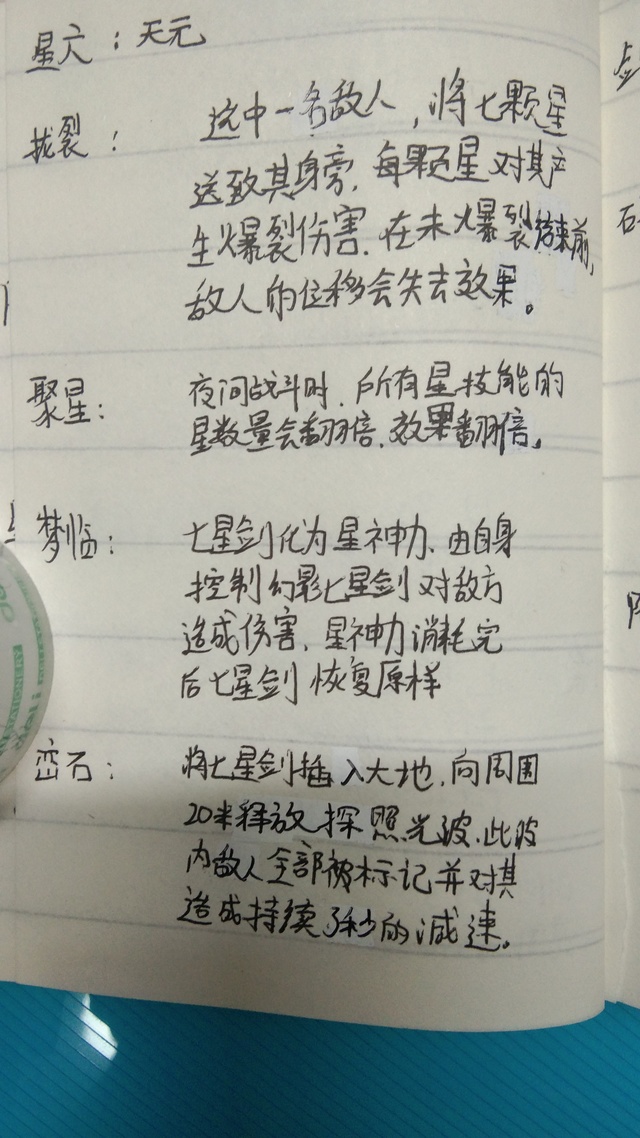 星穴：天元
拢裂：选中一名敌人，将七颗星
送致其身旁，每颗星对其产
生爆裂伤害，在未爆裂结束前，
敌人的位移会失去效果。
聚星：夜间战斗时，所有星技能的
星数量会翻倍，效果翻倍。
梦临：七星剑化为星神力，由自身
控制幻影七星剑对敌方
造成伤害，星神力消耗完
后七星剑恢复原样
峦石：将七星剑插入大地，向周围
20米释放探照光波，此波
内敌人全部被标记并对其
造成持续3秒的减速。